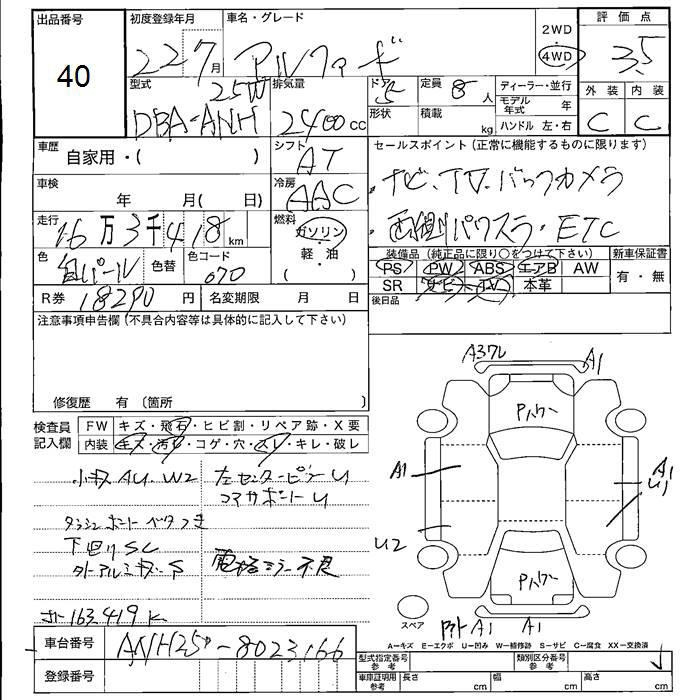 出品番号
40
初度登録年月
22 7月
車名・グレード
アルファード
2WD
4WD
評価点
3.5
外装 内装
C C
型式
DBA-ANH25W
排気量
2400cc
ドア 5
形状
定員 8人
積載 kg
ディーラー・並行
モデル年式 年
ハンドル 左・右
車歴
自家用・( )
シフト
AT
セールスポイント(正常に機能するものに限ります)
・ナビ、TV、バックカメラ
・両側パワスラ・ETC
車検
年 月( 日)
冷房
AAC
走行
16万3千418km
燃料
ガソリン
・
軽・油
( )
色
白パール
色替
色コード
070
装備品(純正品に限り○をつけて下さい)
PS PW ABS エアB AW
SR ナビ TV 本革
新車保証書
有・無
後日品
R券 18290円
名変期限 月 日
注意事項申告欄(不具合内容等は具体的に記入して下さい)
修復歴 有(箇所 )
検査員記入欄
FW キズ・飛石・ヒビ割・リペア跡・X要
内装 キズ・汚れ・コゲ・穴・スレ・キレ・破レ
小キズ AU、W2
左センターピラーU
コアサポートU
ダッシュボード ベタつき
下回りSC
外アルミキズ・S
電格ミラー不良
163,419K
A1
A1
Pパワー
A1
A1
U1
U2
Pパワー
スペア
A1 A1
A=キズ E=エクボ U=凹み W=補修跡 S=サビ C=腐食 XX=交換済
車台番号
ANH25-8023166
登録番号
型式指定番号
参考
類別区分番号
参考
車庫証明用
参考
長さ cm
幅 cm
高さ cm